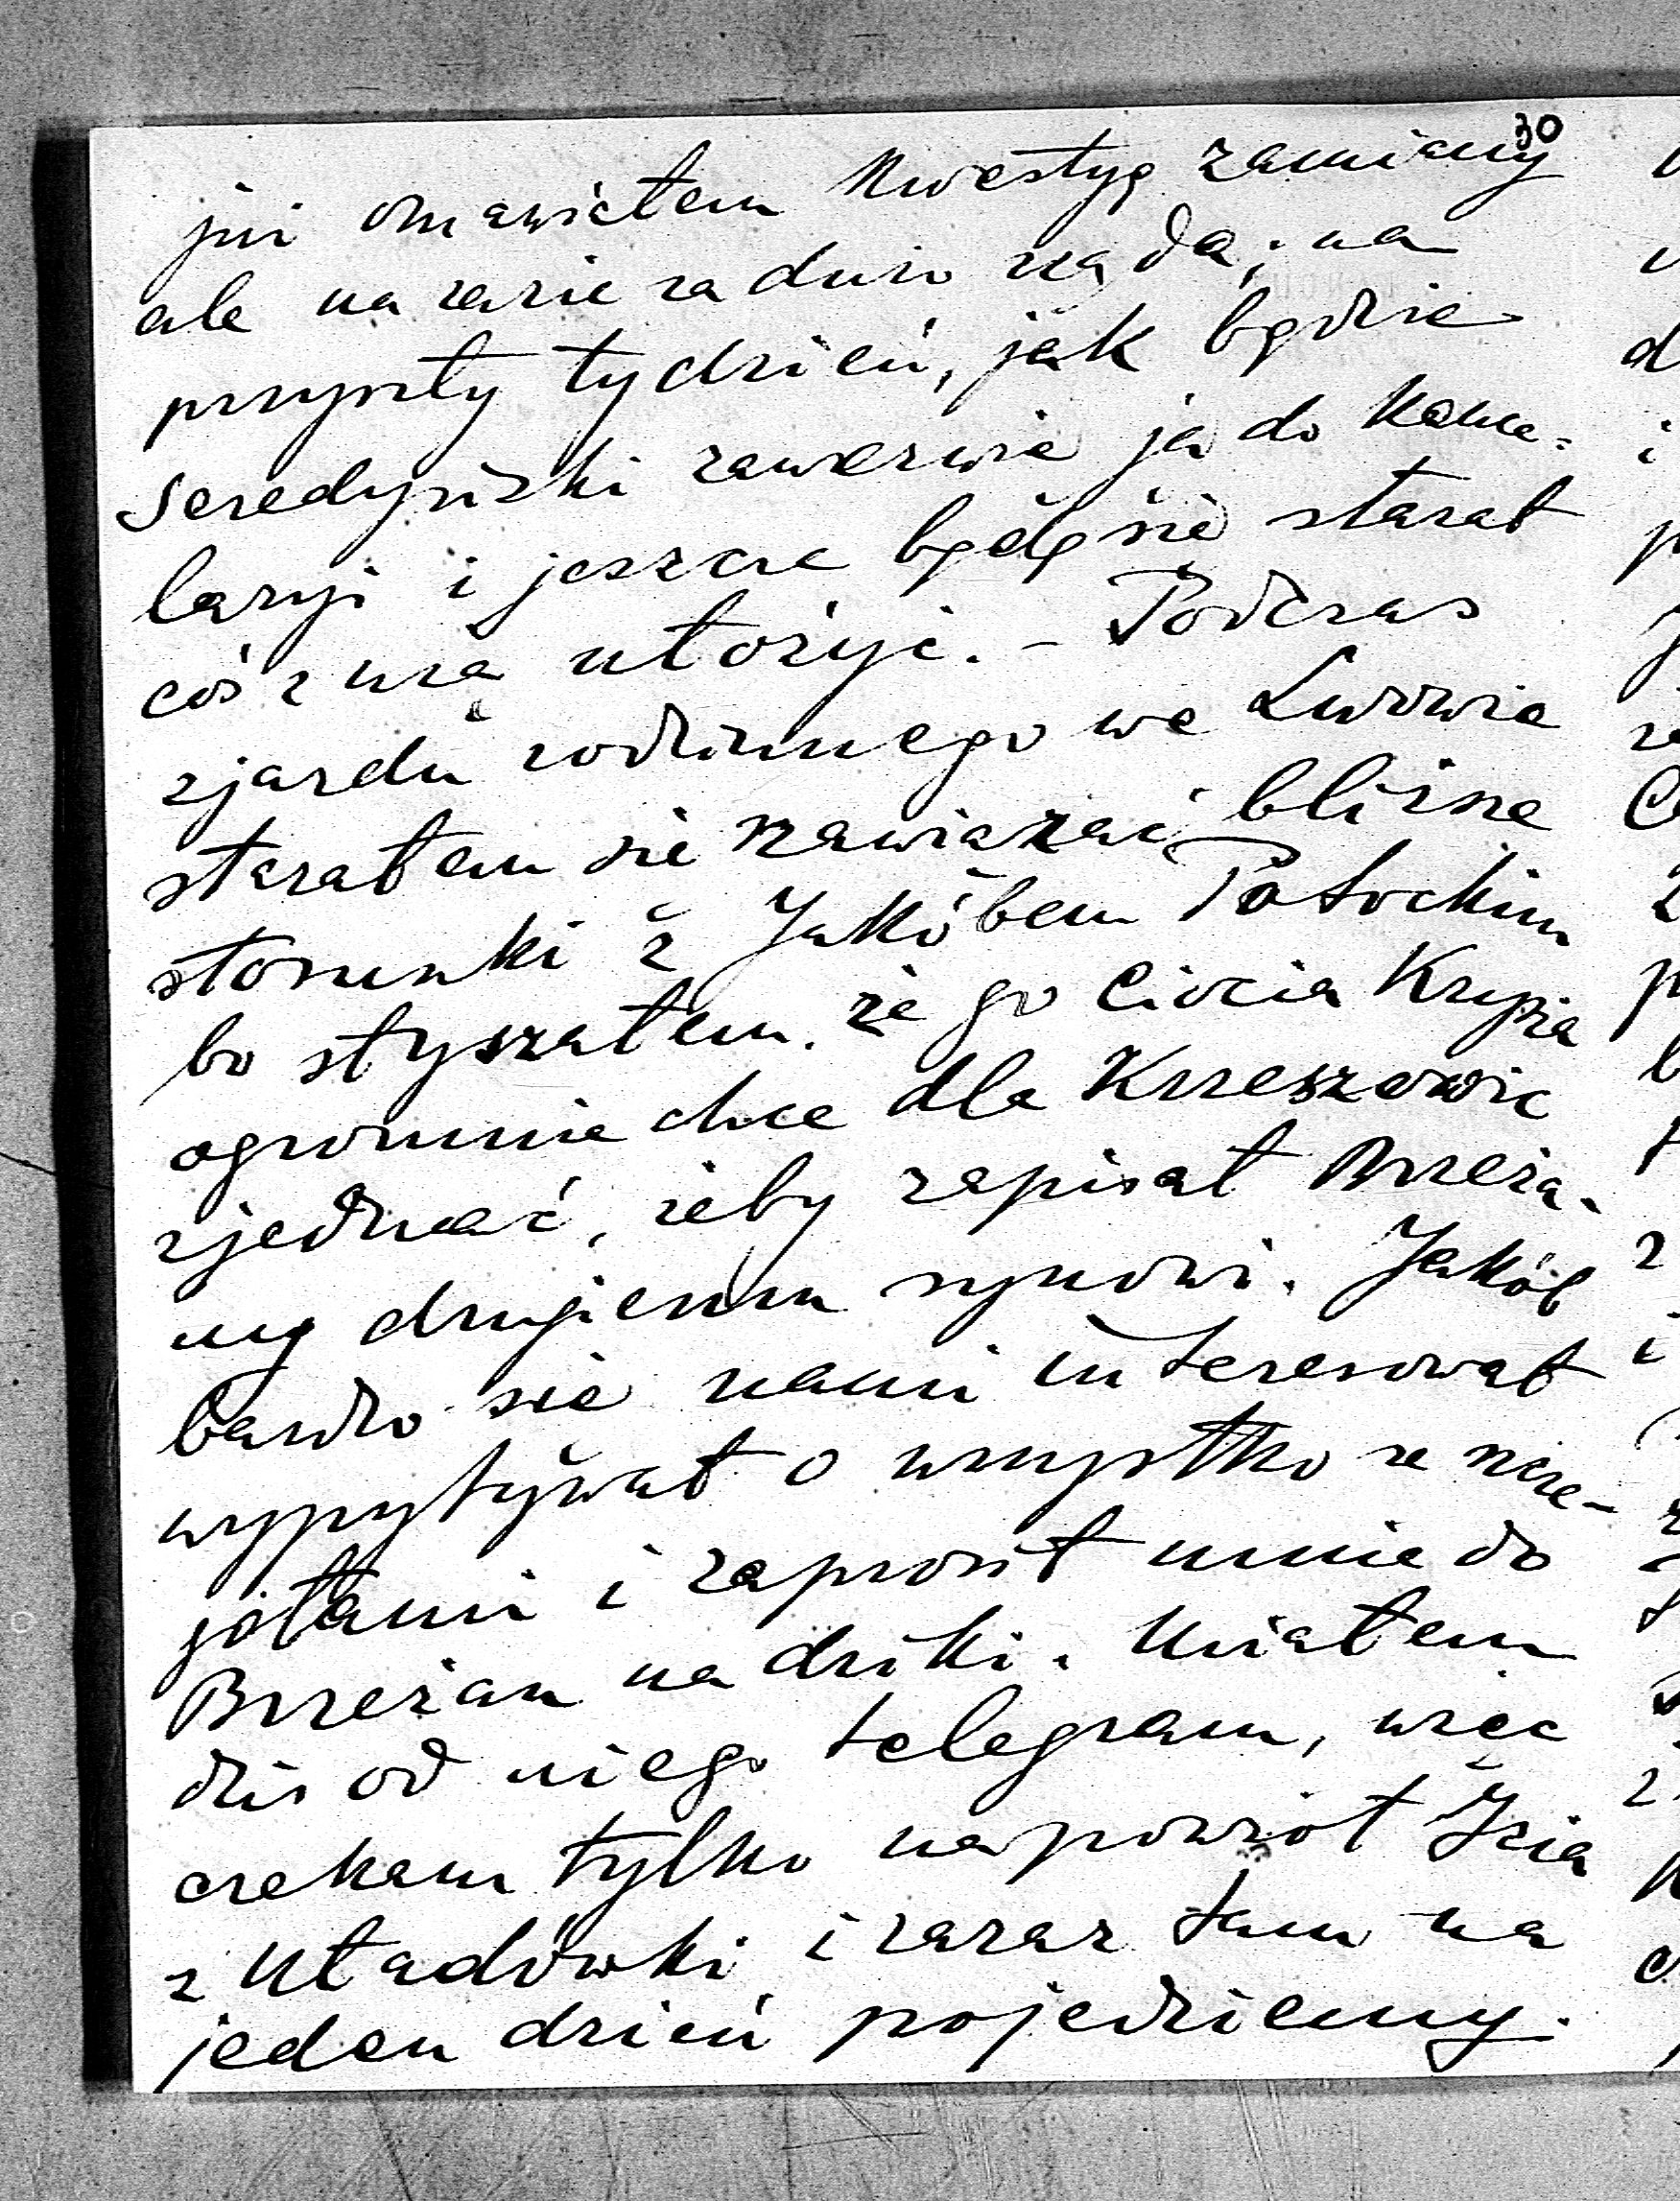 30
już omawiałem kwestyę zamiany
ale na razie za dużo żąda; na
przyszły tydzień, jak będzie
Seredyński zawezwie ją do kance=
laryi i jeszcze będę się starał
coś z nią ułożyć. – Podczas
zjazdu rodzinnego we Lwowie
starałem się nawiązać bliższe
stosunki z Jakóbem Potockim
bo słyszałem, że go Ciocia Krysia
ogromnie chce dla Krzeszowic
zjednać, żeby zapisał Brzeża-
ny drugiemu synowi. Jakób
bardzo się nami interesował
wypytywał o wszystko ze szcze-
gółami i zaprosił mnie do
Brzeżan na dziki. Miałem
dziś od niego telegram, więc
czekam tylko na powrót Izia
z Uładówki i zaraz tam na
jeden dzień pojedziemy.